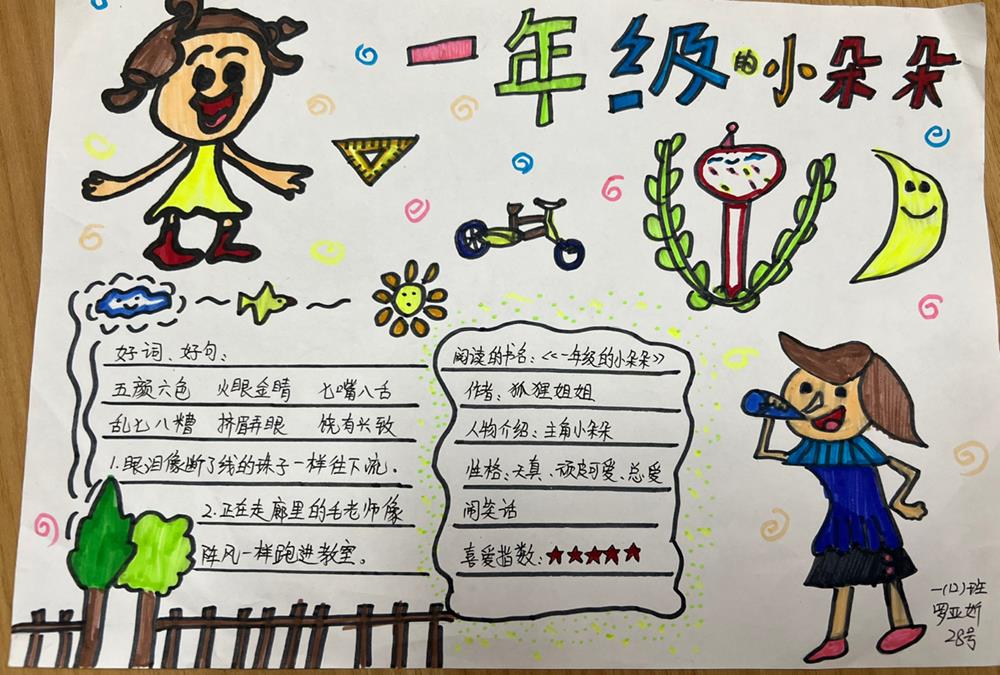 一年级的小朵朵
好词、好句：
五颜六色 火眼金睛 七嘴八舌
乱七八糟 挤眉弄眼 饶有兴致
1.眼泪像断了线的珠子一样往下流。
2.正在走廊里的毛老师像
阵风一样跑进教室。
阅读的书名：<<一年级的小朵朵>>
作者：狐狸姐姐
人物介绍：主角小朵朵
性格：天真、顽皮可爱、总爱
闹笑话
喜爱指数：★★★★★
一(12)班
罗亚妡
28号